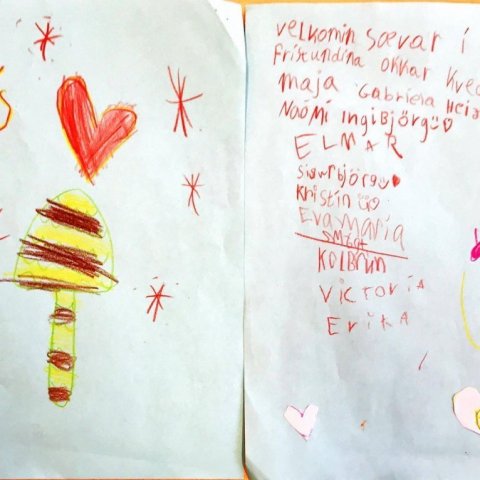 velkomin Sævar í
fristundina okkar kveð
maja Gabriela Hei
Naómí Ingibjörg
ELMAR
Sigurbjörg
Kristín
Eva María
KOLBRÚN
VICTORIA
Erika